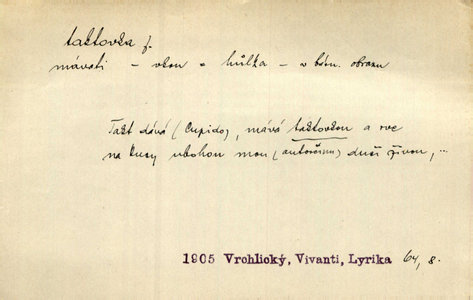 taktovka f.
mávati - vkou = hůlka - v bás. obrazu
Takt dává (Cupido), mává taktovkou a rve
na kusy ubohou mou (autorčinu) duši živou, ...
1905 Vrchlický, Vivanti, Lyrika 64, 8.